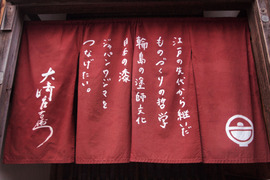 江戸の失代から継いだ
ものづくりの哲学
輪島の塗師文化
日本の漆
ジャパン ワジマを
つなげたい。
大崎庄右ェ門